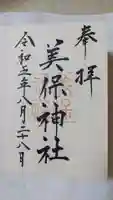 奉拝
美保神社
令和三年八月二十八日